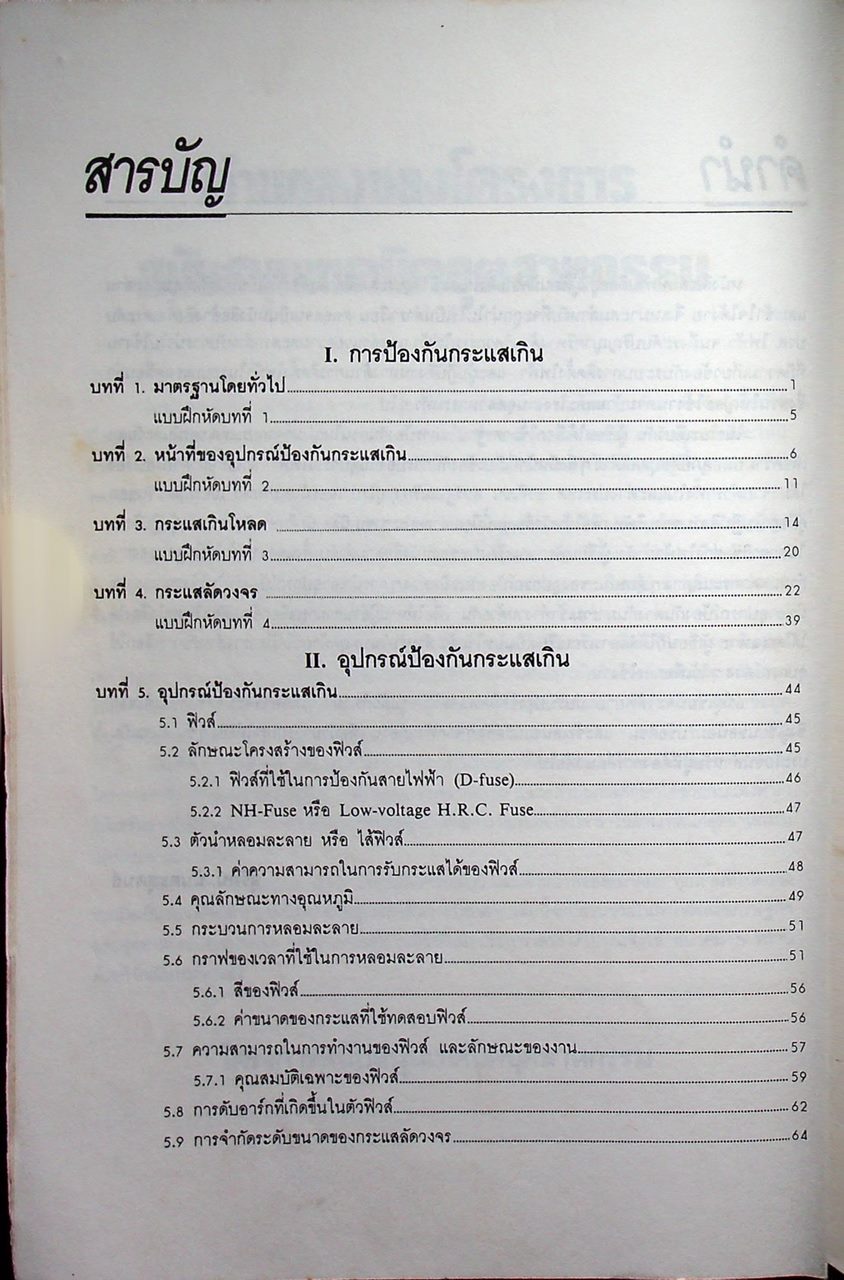 สารบัญ
I. การป้องกันกระแสเกิน
บทที่ 1. มาตรฐานโดยทั่วไป 1
แบบฝึกหัดบทที่ 1 5
บทที่ 2. หน้าที่ของอุปกรณ์ป้องกันกระแสเกิน 6
แบบฝึกหัดบทที่ 2 11
บทที่ 3. กระแสเกินโหลด 14
แบบฝึกหัดบทที่ 3 20
บทที่ 4. กระแสลัดวงจร 22
แบบฝึกหัดบทที่ 4 39
II. อุปกรณ์ป้องกันกระแสเกิน
บทที่ 5. อุปกรณ์ป้องกันกระแสเกิน 44
5.1 ฟิวส์ 45
5.2 ลักษณะโครงสร้างของฟิวส์ 45
5.2.1 ฟิวส์ที่ใช้ในการป้องกันสายไฟฟ้า (D-fuse) 46
5.2.2 NH-Fuse หรือ Low-voltage H.R.C. Fuse 47
5.3 ตัวนำหลอมละลาย หรือ ไส้ฟิวส์ 47
5.3.1 ค่าความสามารถในการรับกระแสได้ของฟิวส์ 48
5.4 คุณลักษณะทางอุณหภูมิ 49
5.5 กระบวนการหลอมละลาย 51
5.6 กราฟของเวลาที่ใช้ในการหลอมละลาย 51
5.6.1 สีของฟิวส์ 56
5.6.2 ค่าขนาดของกระแสที่ใช้ทดสอบฟิวส์ 56
5.7 ความสามารถในการทำงานของฟิวส์ และลักษณะของงาน 57
5.7.1 คุณสมบัติเฉพาะของฟิวส์ 59
5.8 การดับอาร์กที่เกิดขึ้นในตัวฟิวส์ 62
5.9 การจำกัดระดับขนาดของกระแสลัดวงจร 64